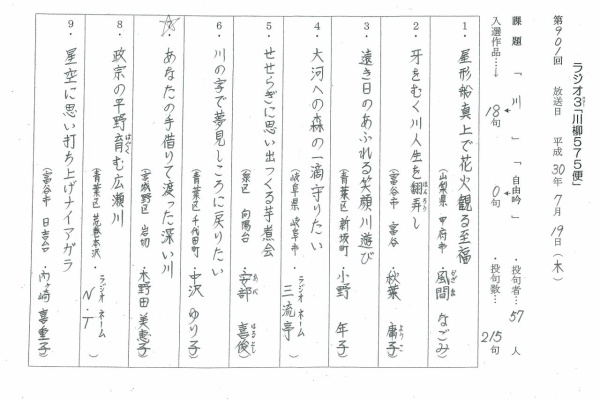 ラジオ3「川柳575便」
第901回 放送日 平成30年7月19日(木)
課題 「川」 「自由吟」 投句者…57人
入選作品……18句 0句 投句数…215句
1・屋形船真上で花火観る至福
(山梨県 甲府市・風間 なごみ)
2・牙をむく川人生を翻弄し
(富谷市 富谷・秋葉 庸子)
3・遠き日のあふれる笑顔川遊び
(青葉区 新坂町・小野 年子)
4・大河への森の一滴守りたい
(岐阜県 岐阜市・ラジオネーム 三流亭)
5・せせらぎに思い出つくる芋煮会
(泉区 向陽台・安部 喜俊)
6・川の字で夢見しころに戻りたい
(青葉区 千代田町・中沢 ゆり子)
☆・あなたの手借りて渡った深い川
(宮城野区 岩切・永野田 美恵子)
8・政宗の平野育む広瀬川
(青葉区 荒巻本沢・ラジオネーム N・T)
9・星空に思い打ち上げナイアガラ
(富谷市 日吉台・内ヶ崎 喜重子)